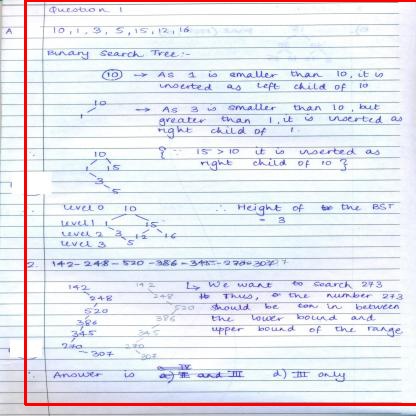 Question 1
A
10, 1, 3, 5, 15, 12, 16
Binary Search Tree:-
10 → As 1 is smaller than 10, it is
inserted as left child of 10
10
1
→ As 3 is smaller than 10, but
greater than 1, it is inserted as
right child of 1.
10
1 15
3
5
{ ∵ 15 > 10 it is inserted as
right child of 10 }
Level 0 10
∴ Height of the BST
= 3
Level 1 1 15
Level 2 3 12 16
Level 3 5
2. 142-248-520-386-345-270-307
142
248
520
386
345
270
307
142
248
520
386
345
270
307
↳ We want to search 273
Thus, the number 273
should be in between
the lower bound and
upper bound of the range
Answer is and III d) III only